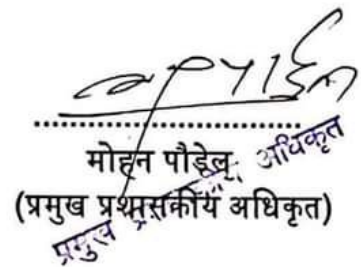 मोहन पौडेल
(प्रमुख प्रशासकीय अधिकृत)
प्रमुख प्रशासकीय अधिकृत